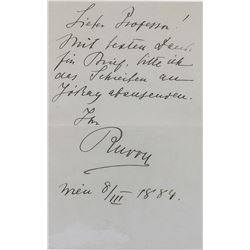 Lieber Professor!
Mit bestem Dank
für Brief, bitte ich
das Schreiben an
abzusenden.
Ihr
Wien 8/III 1889.